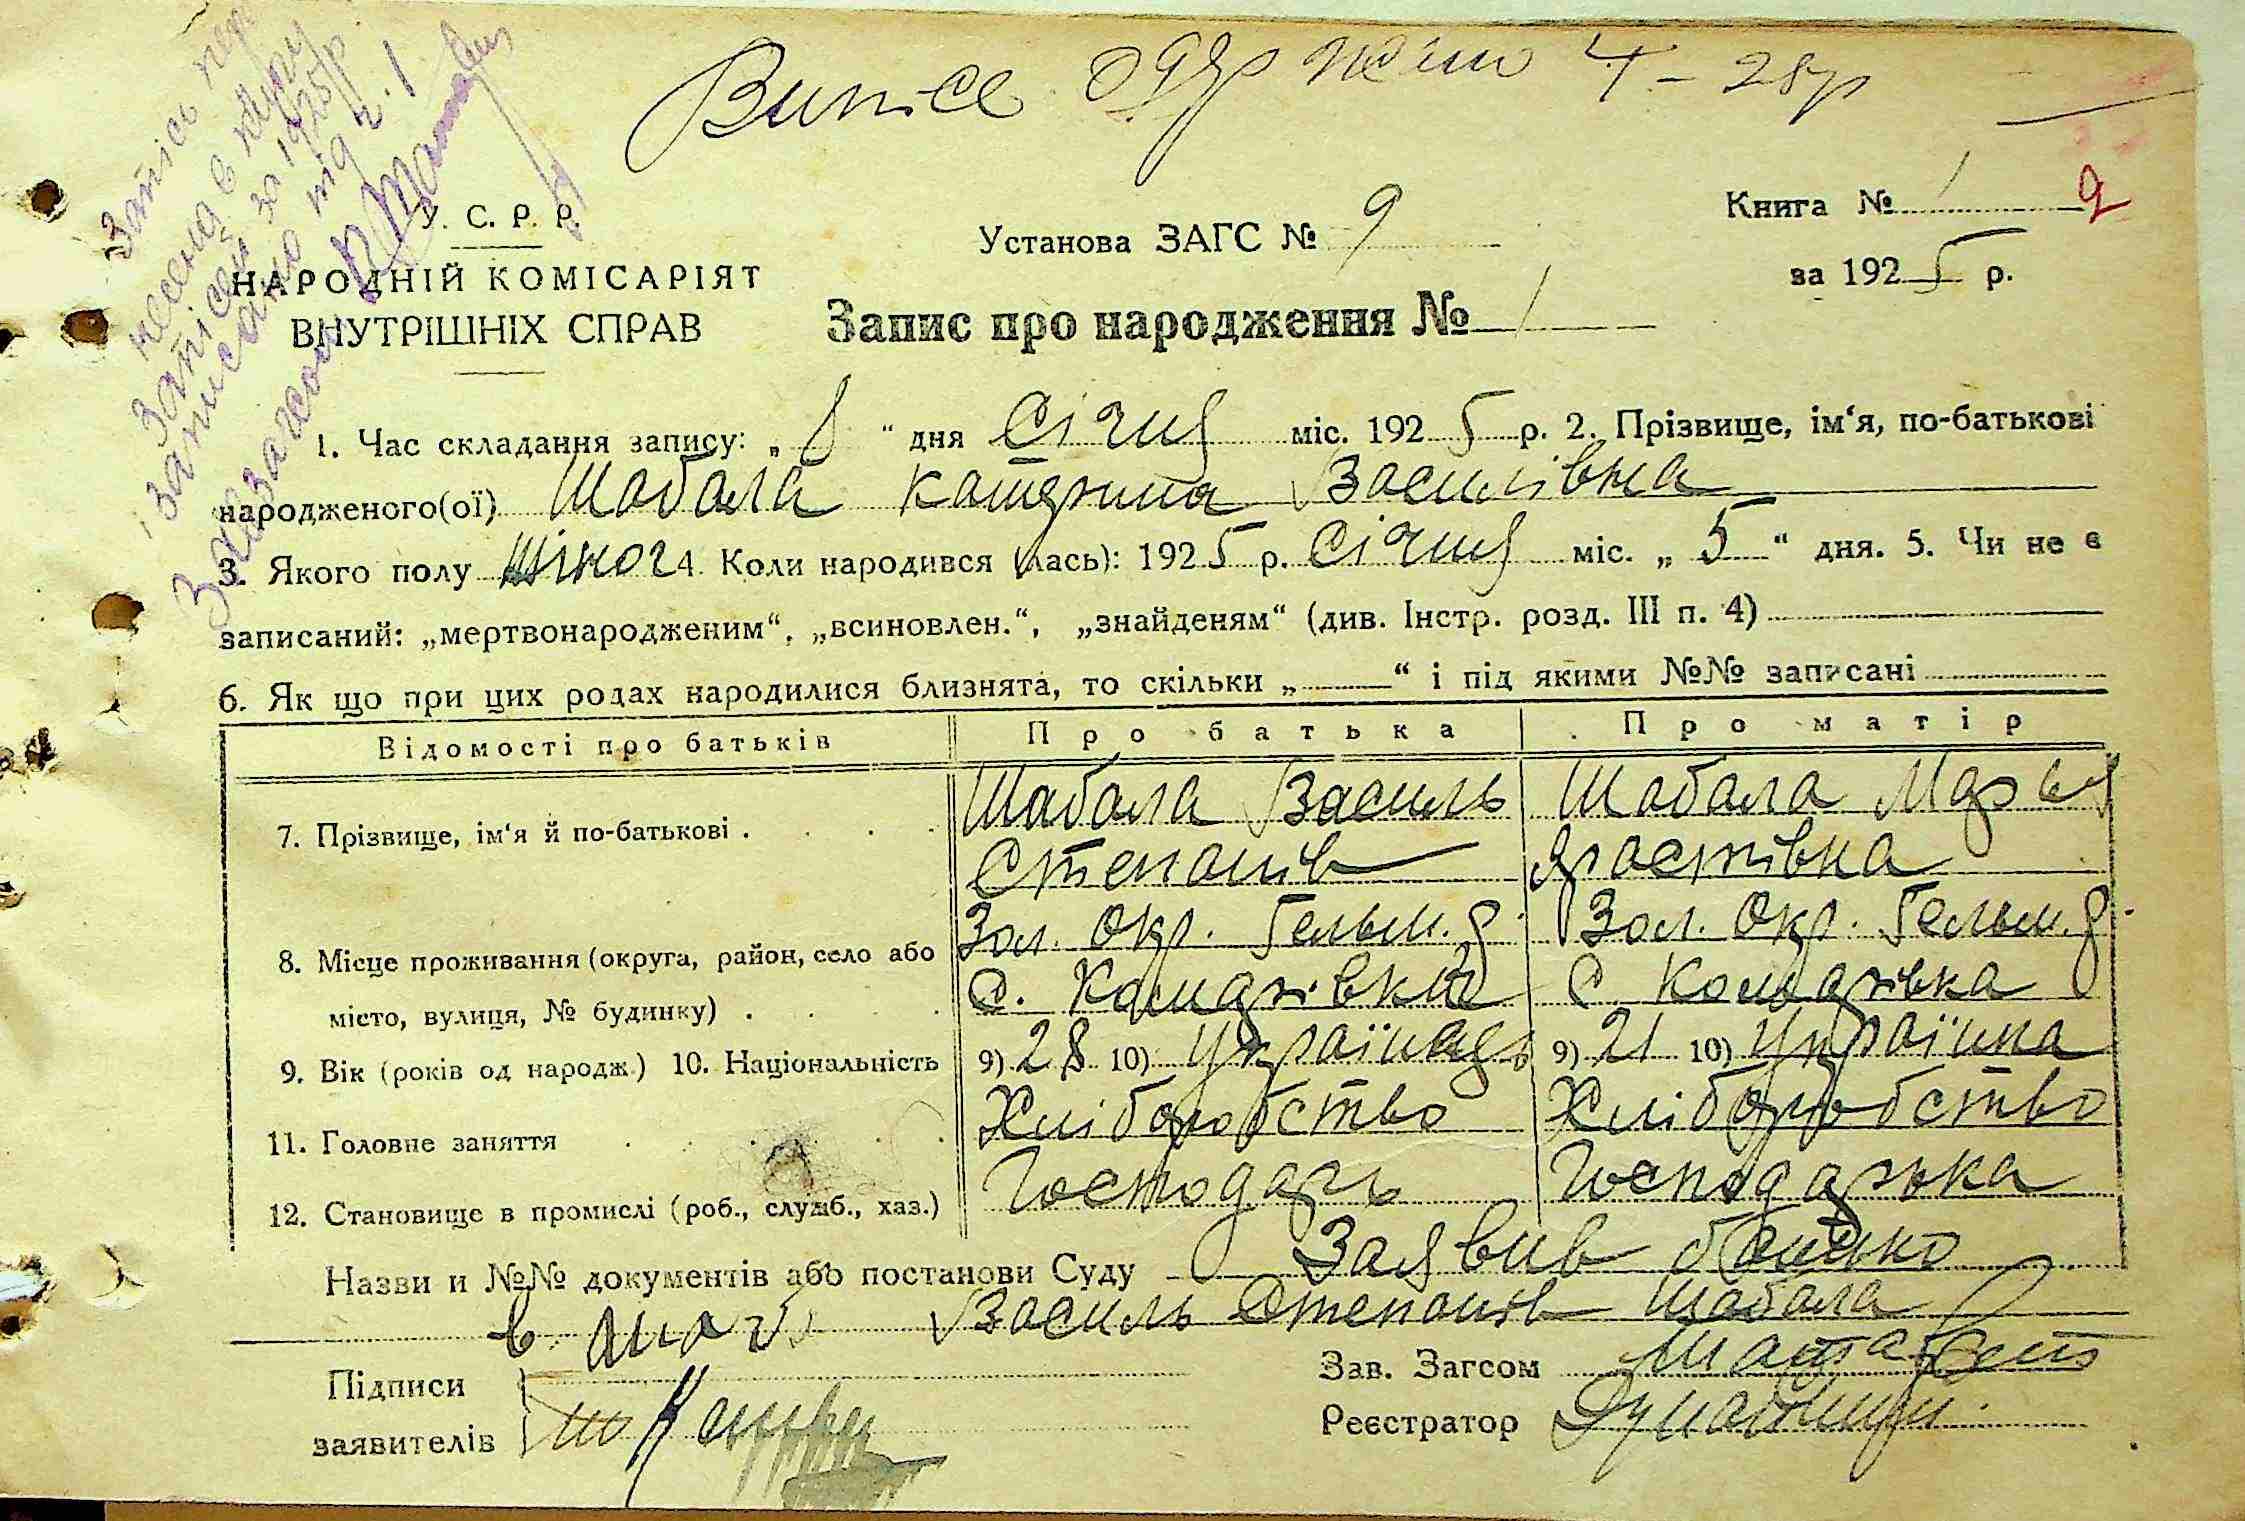 Випис
4 – 28р
Запис пере
несено в книгу
записей за 1925 р.
і записано під ч. 1
Зав Загсом
У. С. Р. Р.
НАРОДНІЙ КОМІСАРІЯТ
ВНУТРІШНІХ СПРАВ
Установа ЗАГС № 9
Книга № 1
2
за 1925 р.
Запис про народження № 1
1. Час складання запису: „ 8 “ дня Січня міс. 1925 р. 2. Прізвище, ім‘я, по-батькові
народженого(ої) Шабала Катерина Василівна
3. Якого полу жіноч 4. Коли народився (лась): 1925 р. Січня міс. „ 5 “ дня. 5. Чи не є
записаний: „мертвонародженим“, „всиновлен.“, „знайденям“ (див. Інстр. розд. III п. 4)
6. Як що при цих родах народилися близнята, то скільки „——“ і під якими №№ записані
Відомості про батьків Про батька Про матір
7. Прізвище, ім‘я й по-батькові . Шабала Василь Шабала Марья
Степанів
8. Місце проживання (округа, район, село або Зол. Окр. Гельм. р. Зол. Окр. Гельм. р.
місто, вулиця, № будинку) . С. Комарівка С. Комарівка
9. Вік (років од народж.) 10. Національність 9) 28 10) Українець 9) 21 10) Українка
11. Головне заняття Хліборобство Хліборобство
12. Становище в промислі (роб., служб., хаз.) Господарь Господарька
Назви и №№ документів або постанови Суду Заявив батько
Василь Степанів Шабала
Підписи
заявителів
Зав. Загсом
Реєстратор